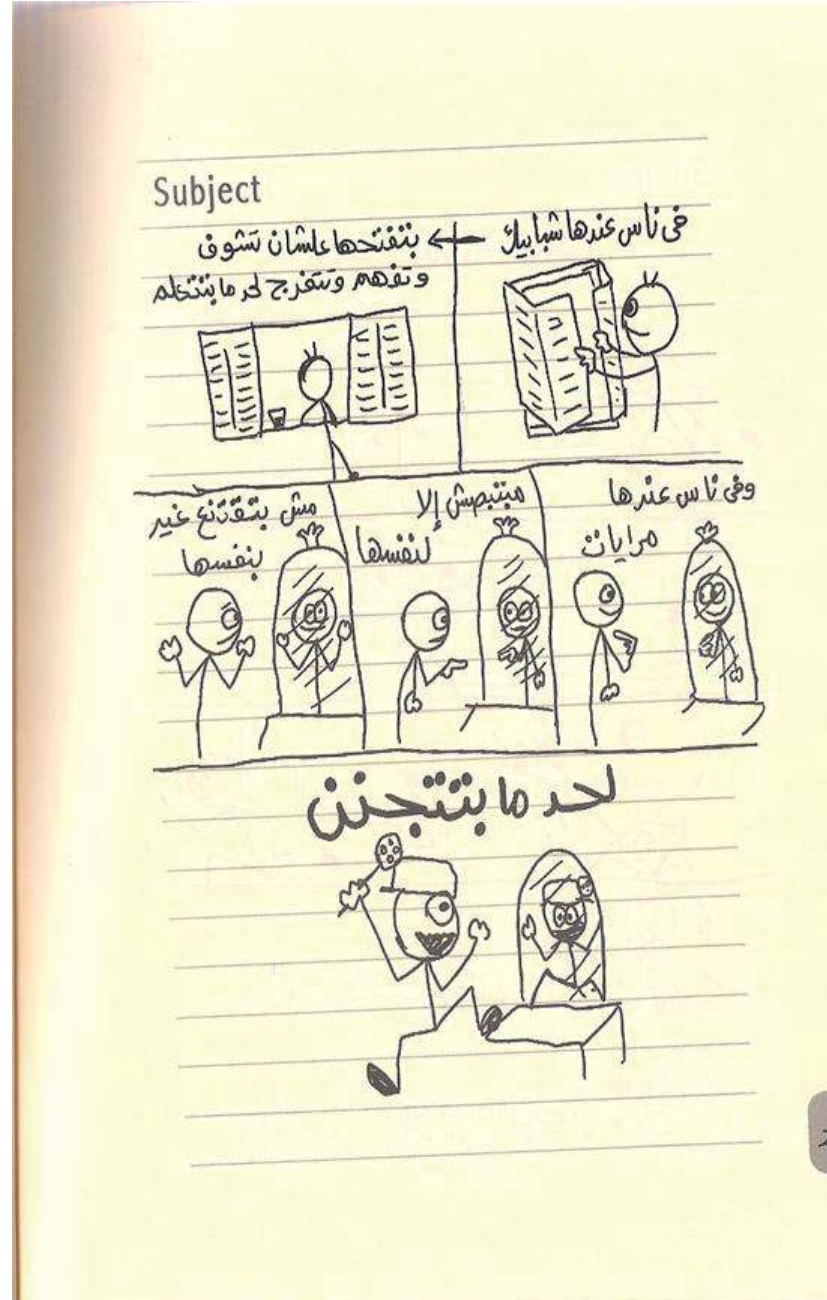 Subject
فى ناس عندها شبابيك
بتفتحها علشان تشوف
وتفهم وتتفرج لحد ما بتتعلم
وفى ناس عندها
مرايات
مبتبصش إلا
لنفسها
مش بتقتنع غير
بنفسها
لحد ما بتتجنن